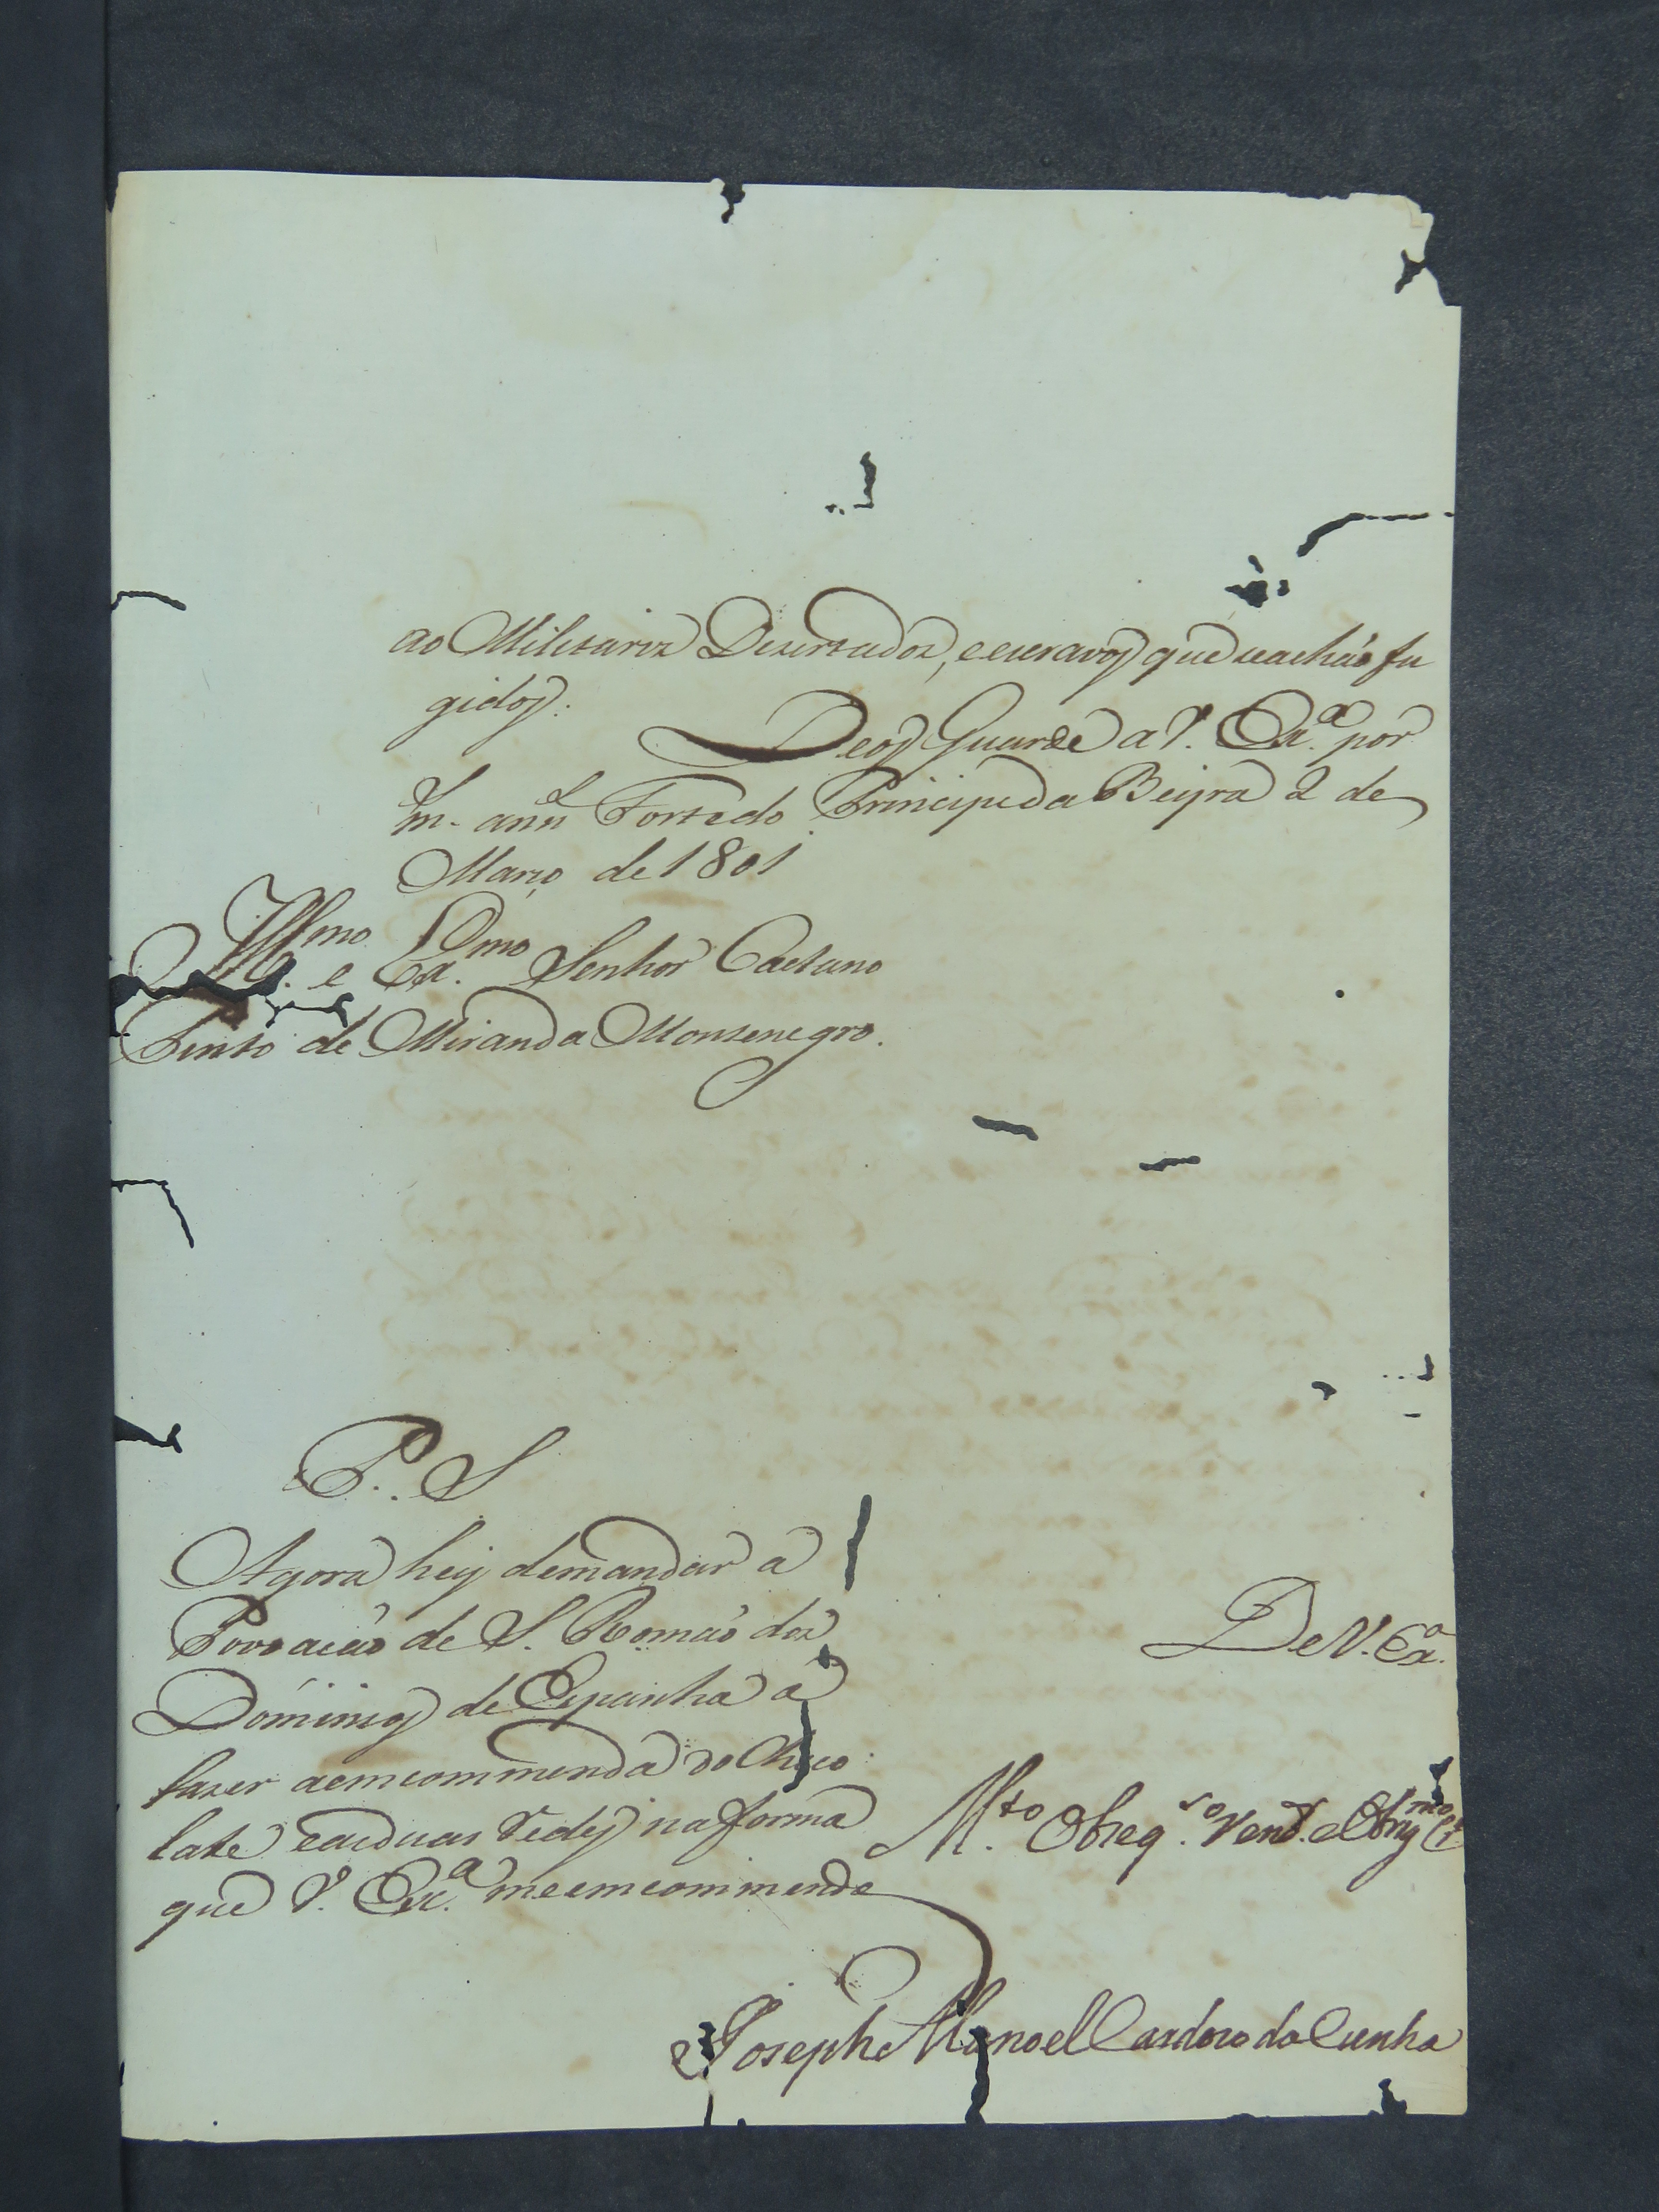 ao Militariz Dezertados, eescravos que seachão fu
gidos.
Deos Guarde a V. Ex.ª por
m. ann.s Forte do Principe da Beijra 2 de
Março de 1801
Ill.mo e Ex.mo Senhor Caetano
Pinto de Miranda Montenegro.
P. S
Agora heij demandar a
Povoacão de S. Romão dos
Dominios de Espanha a
fazer aemcommenda do Choco
late easduas Redes na forma
que V. Ex.ª meemcommenda
De V. Ex.ª
M.to Obseq.so Ven.or e Obrig.mo C.
Joseph Manoel Cardozo da Cunha